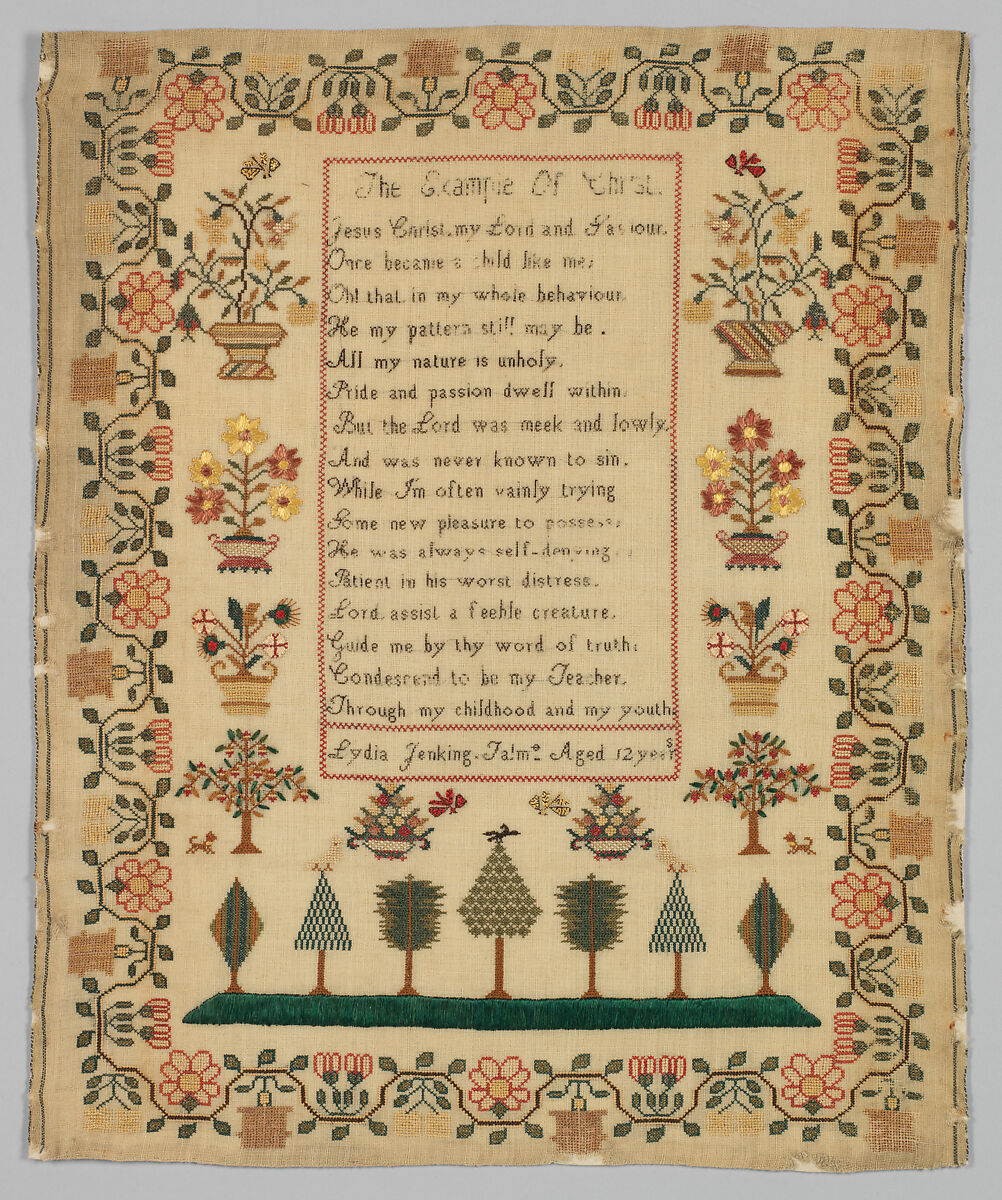 The Example Of Christ.
Jesus Christ, my Lord and Saviour.
Once became a child like me;
Oh! that in my whole behaviour.
He my pattern still may be.
All my nature is unholy,
Pride and passion dwell within;
But the Lord was meek and lowly,
And was never known to sin.
While I'm often vainly trying
Some new pleasure to possess;
He was always self-denying,
Patient in his worst distress.
Lord, assist a feeble creature,
Guide me by thy word of truth;
Condescend to be my Teacher,
Through my childhood and my youth.
Lydia Jenking. Aged 12 years